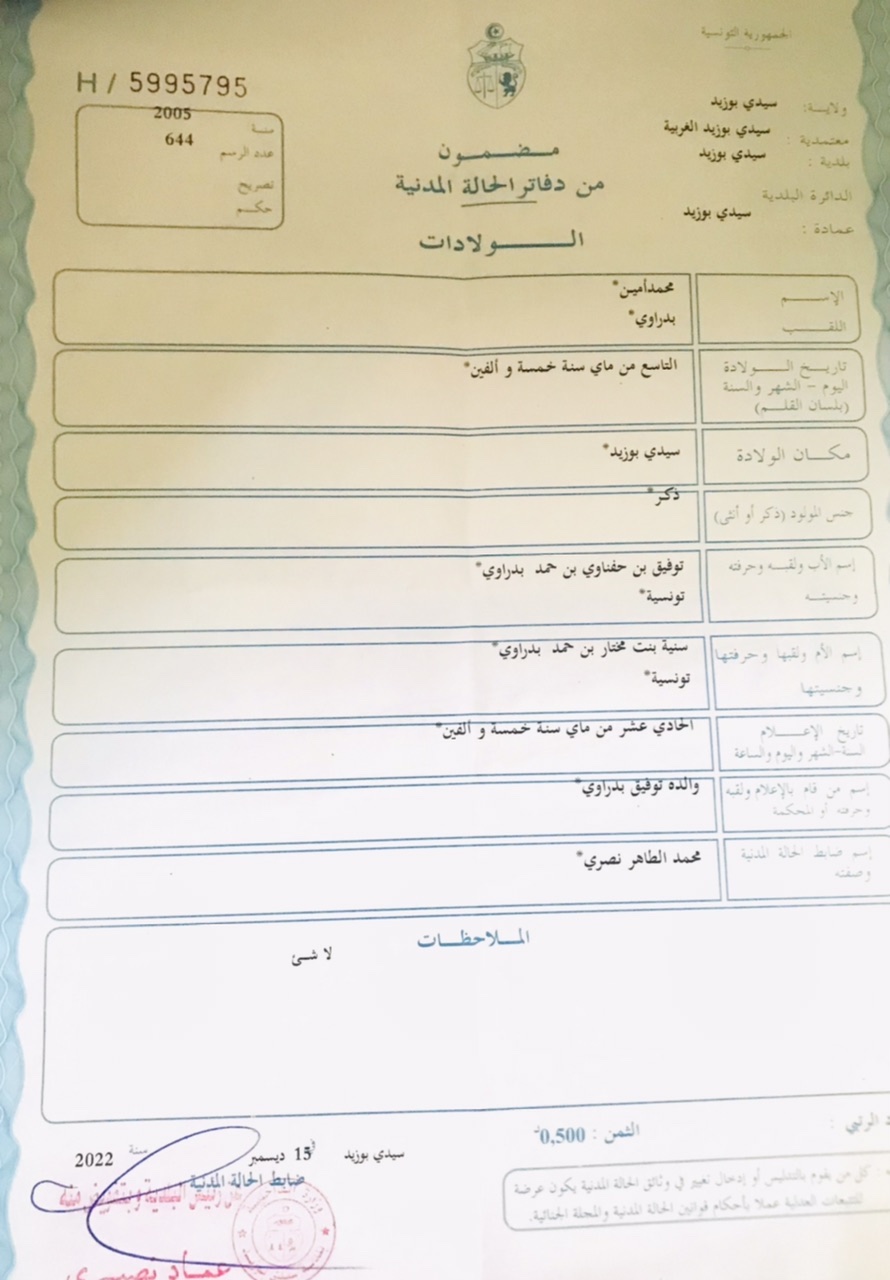 الجمهورية التونسية
ولاية: سيدي بوزيد
معتمدية : سيدي بوزيد الغربية
بلدية : سيدي بوزيد
الدائرة البلدية
عمادة : سيدي بوزيد
H / 5995795
سنة 2005
عدد الرسم 644
تصريح
حكم
مضمون
من دفاتر الحالة المدنية
الولادات
الإسم محمدأمين*
اللقب بدراوي*
تاريخ الولادة التاسع من ماي سنة خمسة و ألفين*
اليوم - الشهر والسنة
(بلسان القلم)
مكان الولادة سيدي بوزيد*
جنس المولود (ذكر أو أنثى) ذكر*
إسم الأب ولقبه وحرفته توفيق بن حفناوي بن حمد بدراوي*
وجنسيته تونسية*
إسم الأم ولقبها وحرفتها سنية بنت مختار بن حمد بدراوي*
وجنسيتها تونسية*
تاريخ الإعلام الحادي عشر من ماي سنة خمسة و ألفين*
السنة-الشهر واليوم والساعة
إسم من قام بالإعلام ولقبه والده توفيق بدراوي*
وحرفته أو المحكمة
إسم ضابط الحالة المدنية محمد الطاهر نصري*
وصفته
الملاحظات
لا شئ
الرتبي :
الثمن : 0,500د
كل من يقوم بالتدليس أو إدخال تغيير في وثائق الحالة المدنية يكون عرضة
للتتبعات العدلية عملا بأحكام قوانين الحالة المدنية والمجلة الجنائية.
سيدي بوزيد في 15 ديسمبر سنة 2022
ضابط الحالة المدنية
عن رئيس البلدية وبتفويض منه
عماد نصيري